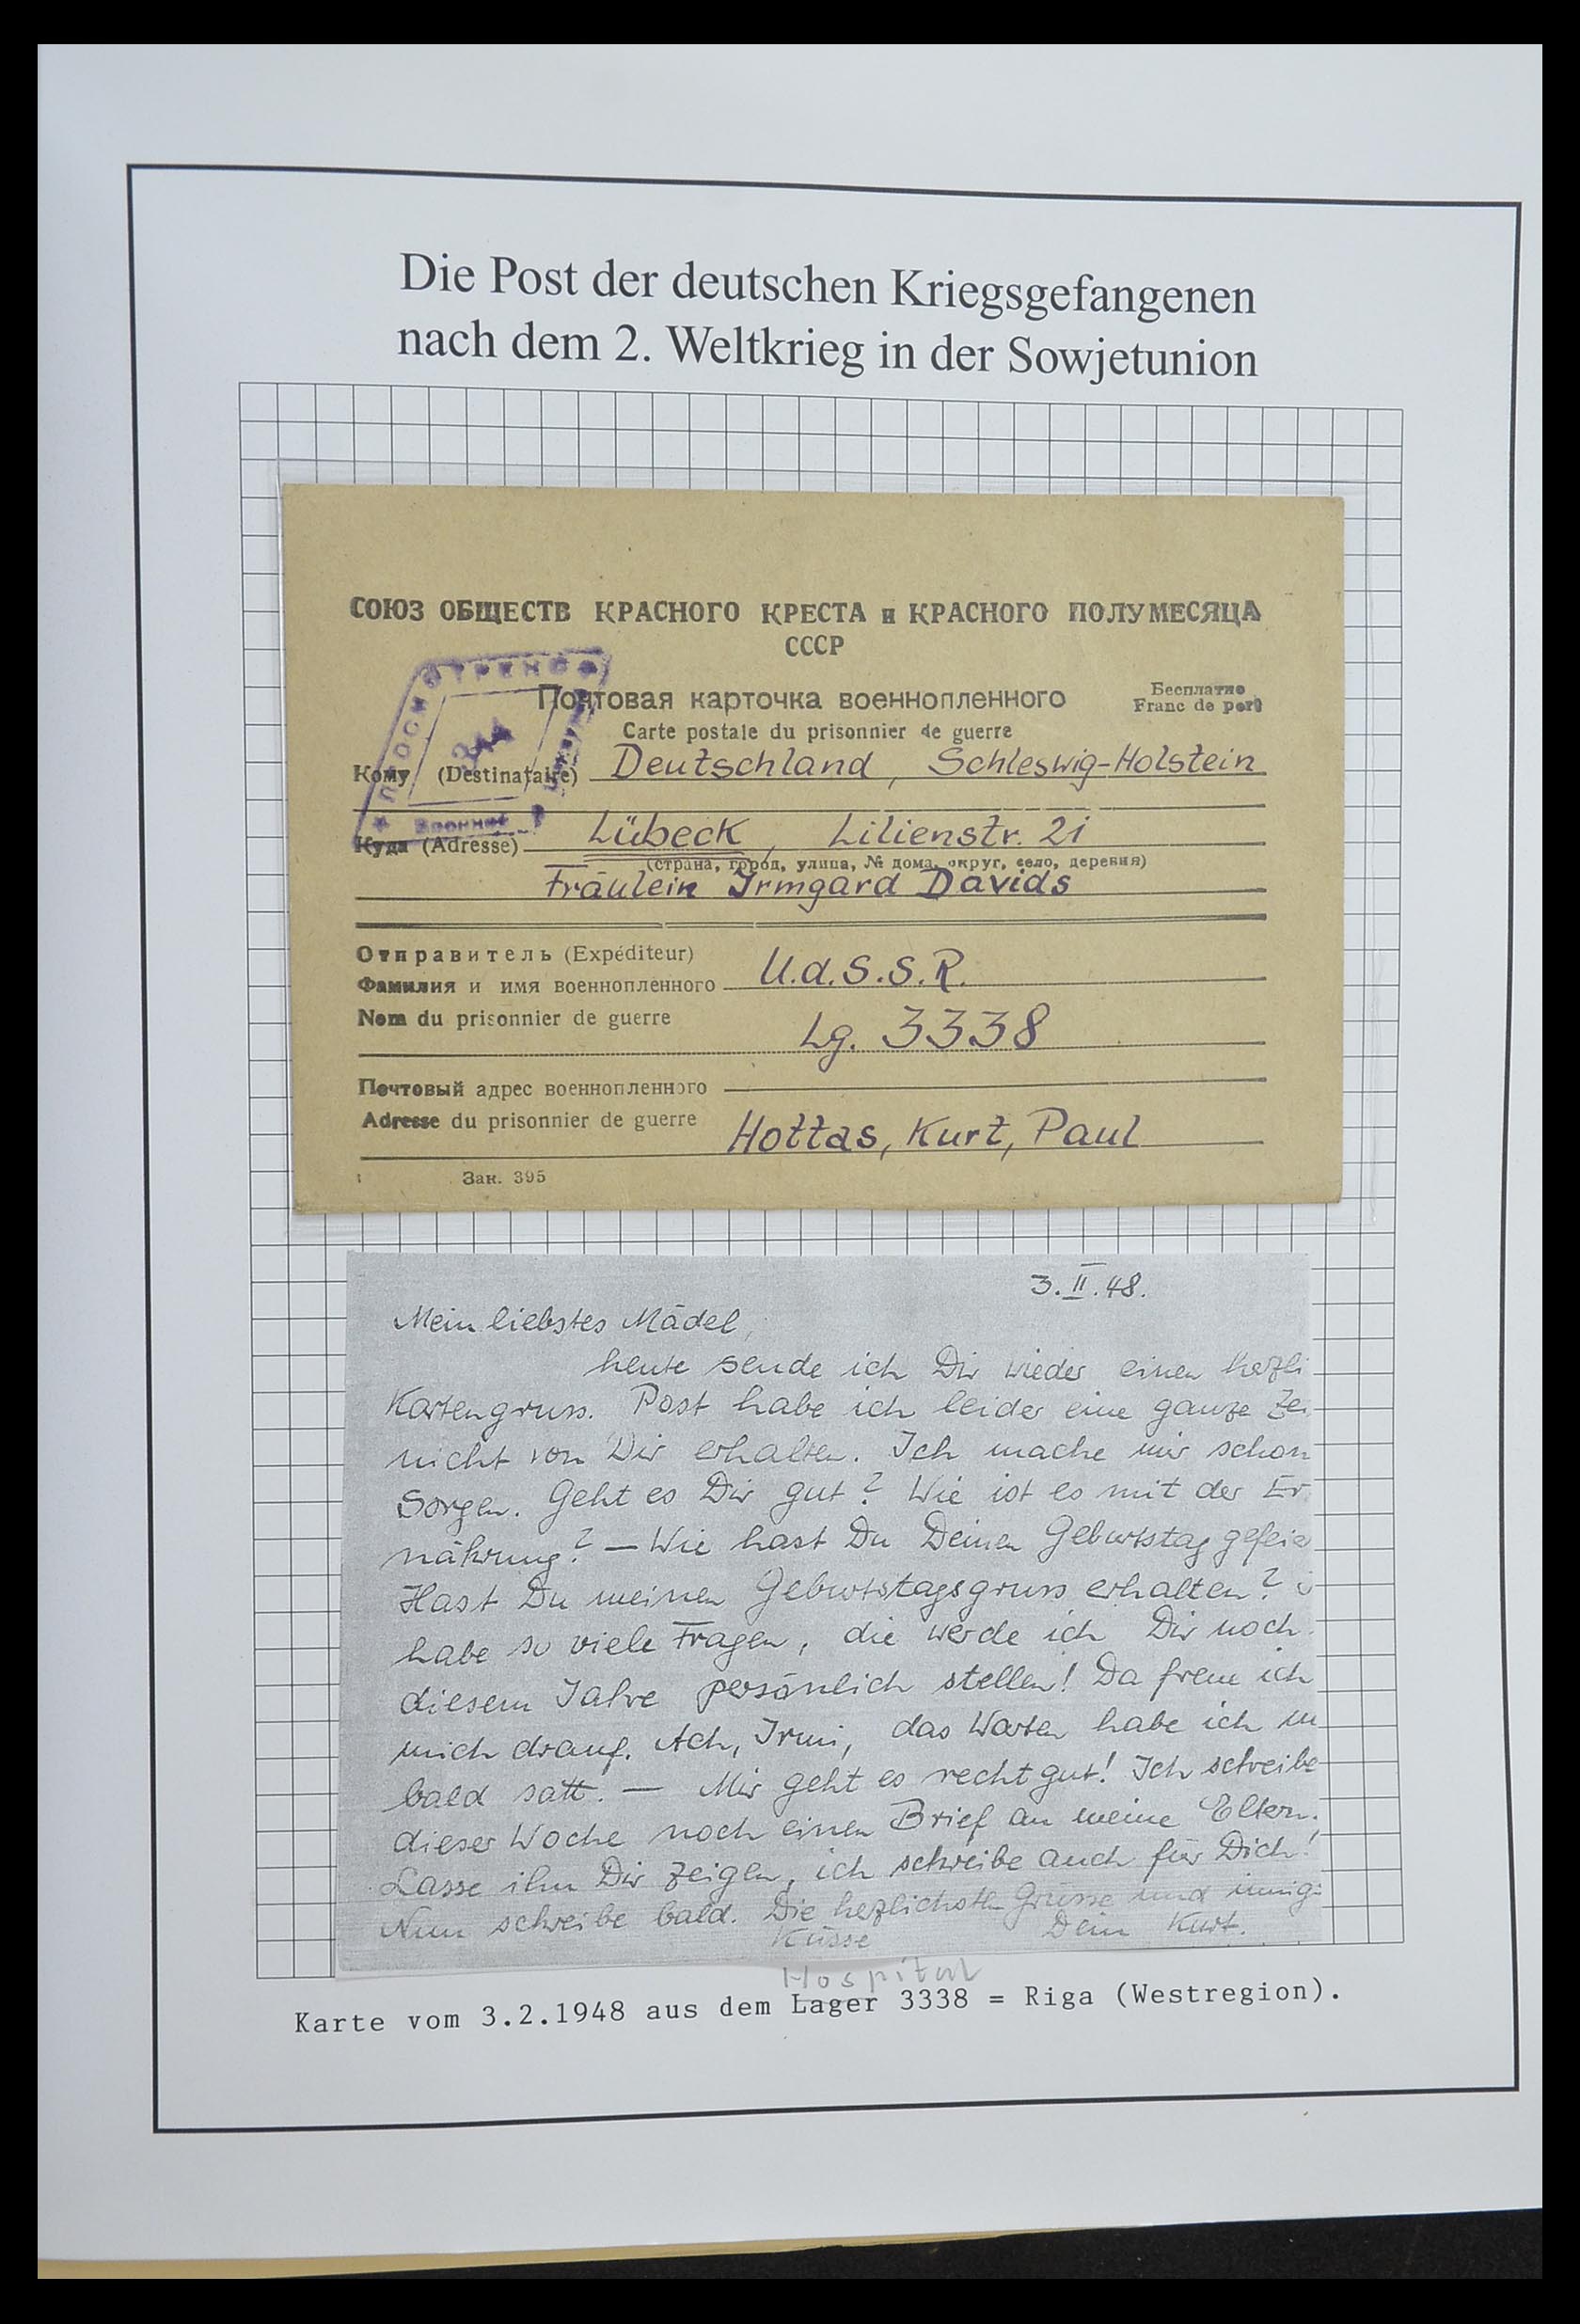 Die Post der deutschen Kriegsgefangenen
nach dem 2. Weltkrieg in der Sowjetunion
СОЮЗ ОБЩЕСТВ КРАСНОГО КРЕСТА и КРАСНОГО ПОЛУМЕСЯЦА
СССР
Почтовая карточка военнопленного
Бесплатно
Franc de port
Carte postale du prisonnier de guerre
Кому (Destinataire) Deutschland, Schleswig-Holstein
Куда (Adresse) Lübeck, Lilienstr. 21
(страна, город, улица, № дома, округ, село, деревня)
Fräulein Irmgard Davids
Отправитель (Expéditeur)
Фамилия и имя военнопленного U.d.S.S.R.
Nom du prisonnier de guerre
Lg. 3338
Почтовый адрес военнопленного
Adresse du prisonnier de guerre Hottas, Kurt, Paul
Зак. 395
3.II.48.
Mein liebstes Mädel,
heute sende ich Dir wieder einen herzli
Kartengruss. Post habe ich leider eine ganze Zei
nicht von Dir erhalten. Ich mache mir schon
Sorgen. Geht es Dir gut? Wie ist es mit der Er
nährung? — Wie hast Du Deinen Geburtstag gefeie
Hast Du meinen Geburtstagsgruss erhalten?
habe so viele Fragen, die werde ich Dir noch
diesem Jahre persönlich stellen! Da freue ich
mich drauf. Ach, Irmi, das Warten habe ich
bald satt. — Mir geht es recht gut! Ich schreibe
dieser Woche noch einen Brief an meine Eltern.
Lasse ihn Dir zeigen, ich schreibe auch für Dich!
Nun schreibe bald. Die herzlichsten Grüsse und innig
Küsse Dein Kurt.
Hospital
Karte vom 3.2.1948 aus dem Lager 3338 = Riga (Westregion).